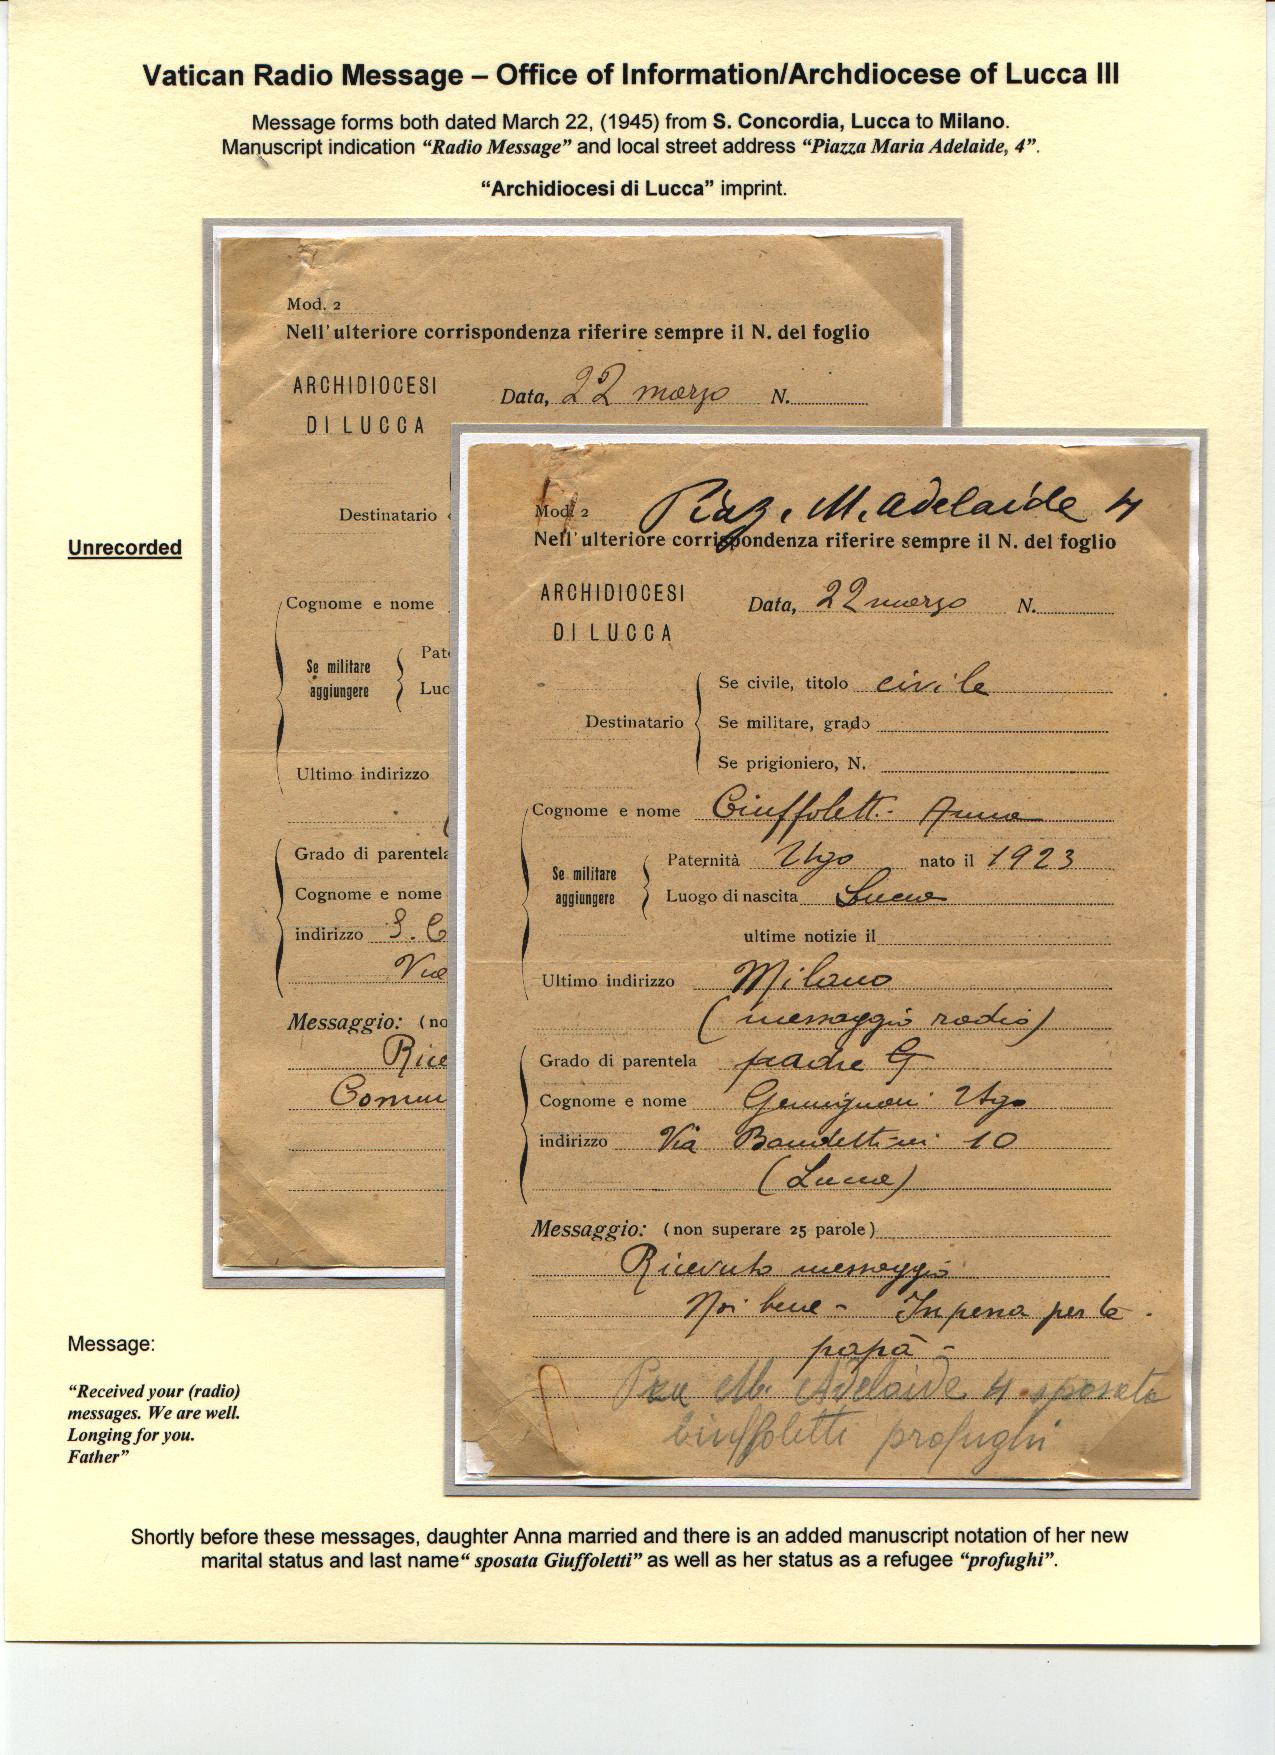 Vatican Radio Message – Office of Information/Archdiocese of Lucca III
Message forms both dated March 22, (1945) from S. Concordia, Lucca to Milano.
Manuscript indication “Radio Message” and local street address “Piazza Maria Adelaide, 4”.
“Archidiocesi di Lucca” imprint.
Mod. 2
Nell'ulteriore corrispondenza riferire sempre il N. del foglio
ARCHIDIOCESI
DI LUCCA
Data, 22 marzo N.
Destinatario
Cognome e nome
Se militare
aggiungere
Pat
Luo
Ultimo indirizzo
Grado di parentela
Cognome e nome
indirizzo S. C
Via
Messaggio: (no
Rice
Comu
Unrecorded
Piaz. M. Adelaide 4
Mod. 2
Nell'ulteriore corrispondenza riferire sempre il N. del foglio
ARCHIDIOCESI
DI LUCCA
Data, 22 marzo N.
Se civile, titolo civile
Destinatario
Se militare, grado
Se prigioniero, N.
Cognome e nome Giuffoletti Anna
Se militare
aggiungere
Paternità Ugo nato il 1923
Luogo di nascita Lucca
ultime notizie il
Ultimo indirizzo Milano
(messaggio radio)
Grado di parentela padre G
Cognome e nome Gemignani Ugo
indirizzo Via Bandettini 10
(Lucca)
Messaggio: (non superare 25 parole)
Ricevuto messaggio
Noi bene - In pena per te -
papà -
M. Adelaide 4 sposata
Ciuffoletti profughi
Message:
“Received your (radio)
messages. We are well.
Longing for you.
Father”
Shortly before these messages, daughter Anna married and there is an added manuscript notation of her new
marital status and last name“ sposata Giuffoletti” as well as her status as a refugee “profughi”.